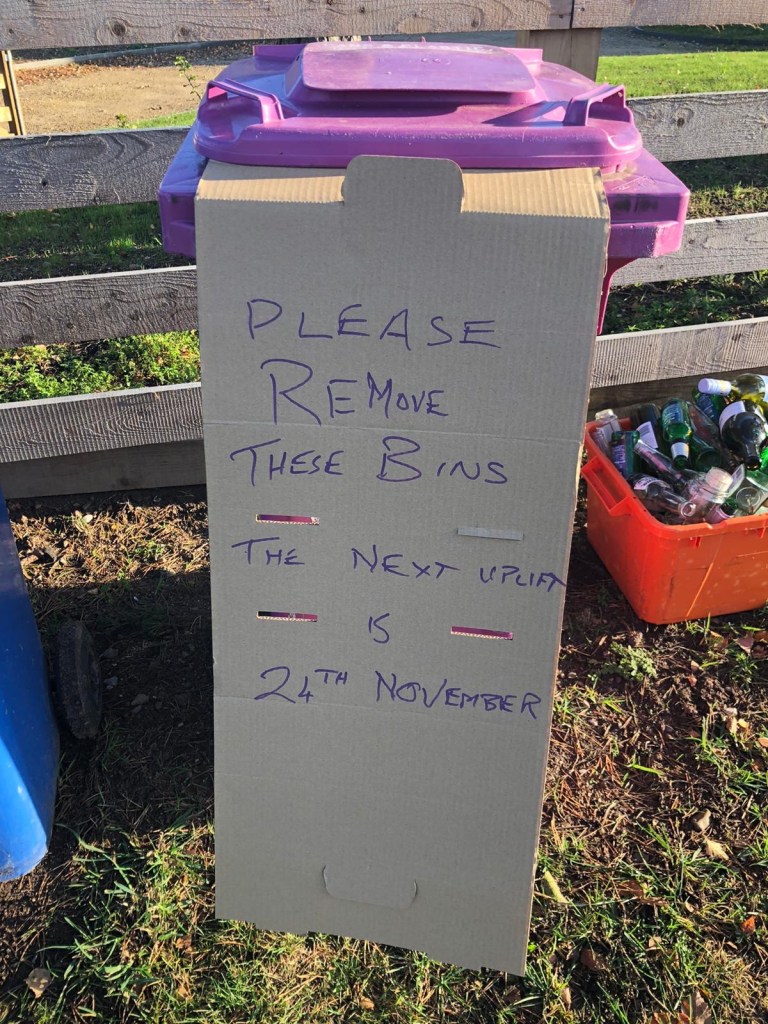 PLEASE
REMOVE
THESE BINS
THE NEXT UPLIFT
IS
24TH NOVEMBER